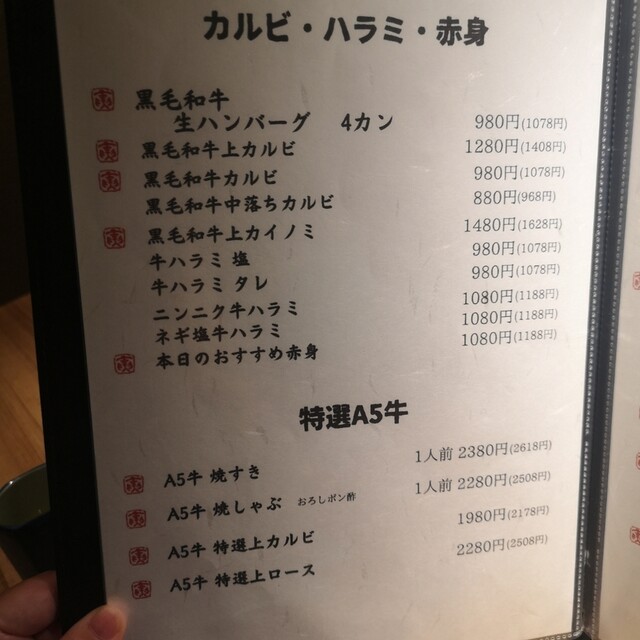 カルビ・ハラミ・赤身
黒毛和牛
生ハンバーグ 4カン 980円(1078円)
黒毛和牛上カルビ 1280円(1408円)
黒毛和牛カルビ 980円(1078円)
黒毛和牛中落ちカルビ 880円(968円)
黒毛和牛上カイノミ 1480円(1628円)
牛ハラミ 塩 980円(1078円)
牛ハラミ タレ 980円(1078円)
ニンニク牛ハラミ 1080円(1188円)
ネギ塩牛ハラミ 1080円(1188円)
本日のおすすめ赤身 1080円(1188円)
特選A5牛
A5牛 焼すき 1人前 2380円(2618円)
A5牛 焼しゃぶ おろしポン酢 1人前 2280円(2508円)
A5牛 特選上カルビ 1980円(2178円)
A5牛 特選上ロース 2280円(2508円)